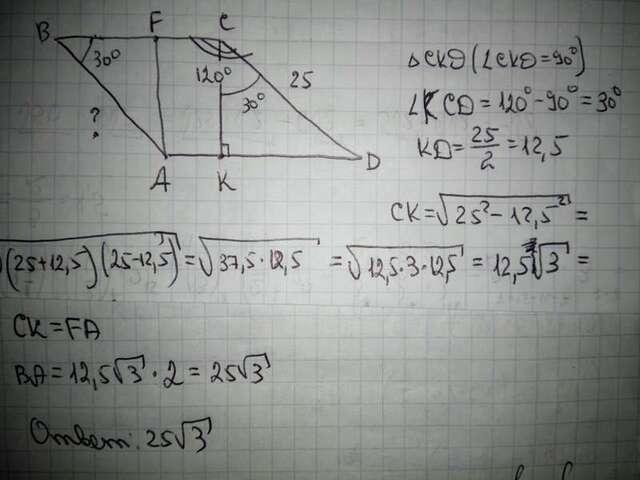 B F C
30° 120° 30° 25
?
A K D
△CKD (∠CKD=90°)
∠KCD = 120° - 90° = 30°
KD = 25/2 = 12,5
CK = √(25² - 12,5²) =
√((25+12,5)(25-12,5)) = √(37,5·12,5) = √(12,5·3·12,5) = 12,5√3 =
CK = FA
BA = 12,5√3 · 2 = 25√3
Ответ: 25√3